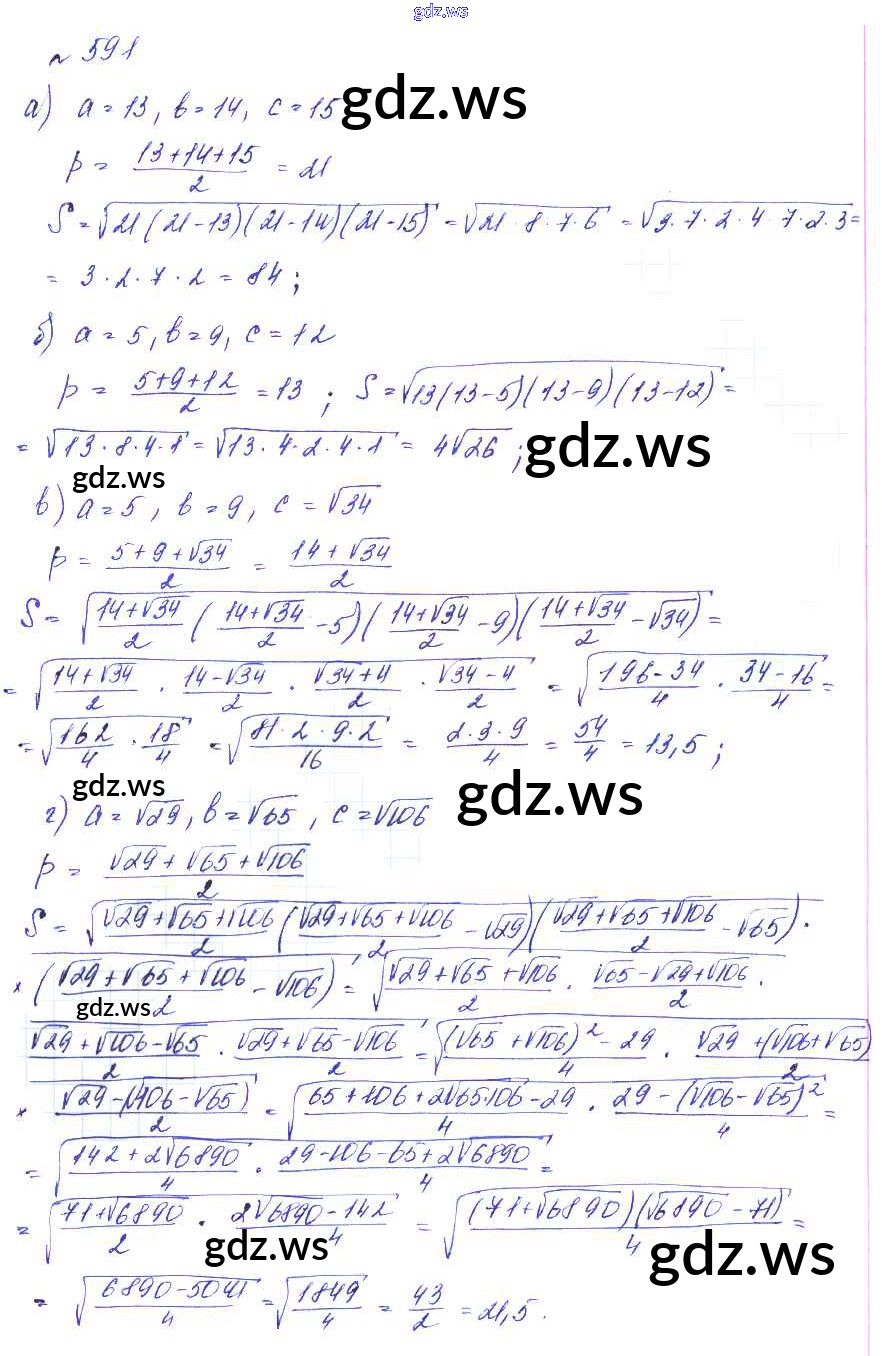 gdz.ws
№ 591
а) a = 13, b = 14, c = 15 gdz.ws
p = (13+14+15)/2 = 21
S = √(21(21-13)(21-14)(21-15)) = √(21·8·7·6) = √(3·7·2·4·7·2·3) =
= 3·2·7·2 = 84;
б) a = 5, b = 9, c = 12
p = (5+9+12)/2 = 13; S = √(13(13-5)(13-9)(13-12)) =
= √(13·8·4·1) = √(13·4·2·4·1) = 4√26; gdz.ws
gdz.ws
в) a = 5, b = 9, c = √34
p = (5+9+√34)/2 = (14+√34)/2
S = √((14+√34)/2 ((14+√34)/2 - 5)((14+√34)/2 - 9)((14+√34)/2 - √34)) =
= √((14+√34)/2 · (14-√34)/2 · (√34+4)/2 · (√34-4)/2) = √((196-34)/4 · (34-16)/4) =
= √(162/4 · 18/4) = √((81·2·9·2)/16) = (2·3·9)/4 = 54/4 = 13,5;
gdz.ws
г) a = √29, b = √65, c = √106 gdz.ws
p = (√29+√65+√106)/2
S = √((√29+√65+√106)/2 ((√29+√65+√106)/2 - √29)((√29+√65+√106)/2 - √65) ·
× ((√29+√65+√106)/2 - √106)) = √((√29+√65+√106)/2 · (√65-√29+√106)/2 ·
gdz.ws
(√29+√106-√65)/2 · (√29+√65-√106)/2) = √(((√65+√106)²-29)/4 · (√29+(√106+√65))/2
× (√29-(√106-√65))/2) = √((65+106+2√65·106-29)/4 · (29-(√106-√65)²)/4) =
= √((142+2√6890)/4 · (29-106-65+2√6890)/4) =
= √((71+√6890)/2 · (2√6890-142)/4) = √(((71+√6890)(√6890-71))/4) =
gdz.ws gdz.ws
= √((6890-5041)/4) = √(1849/4) = 43/2 = 21,5.